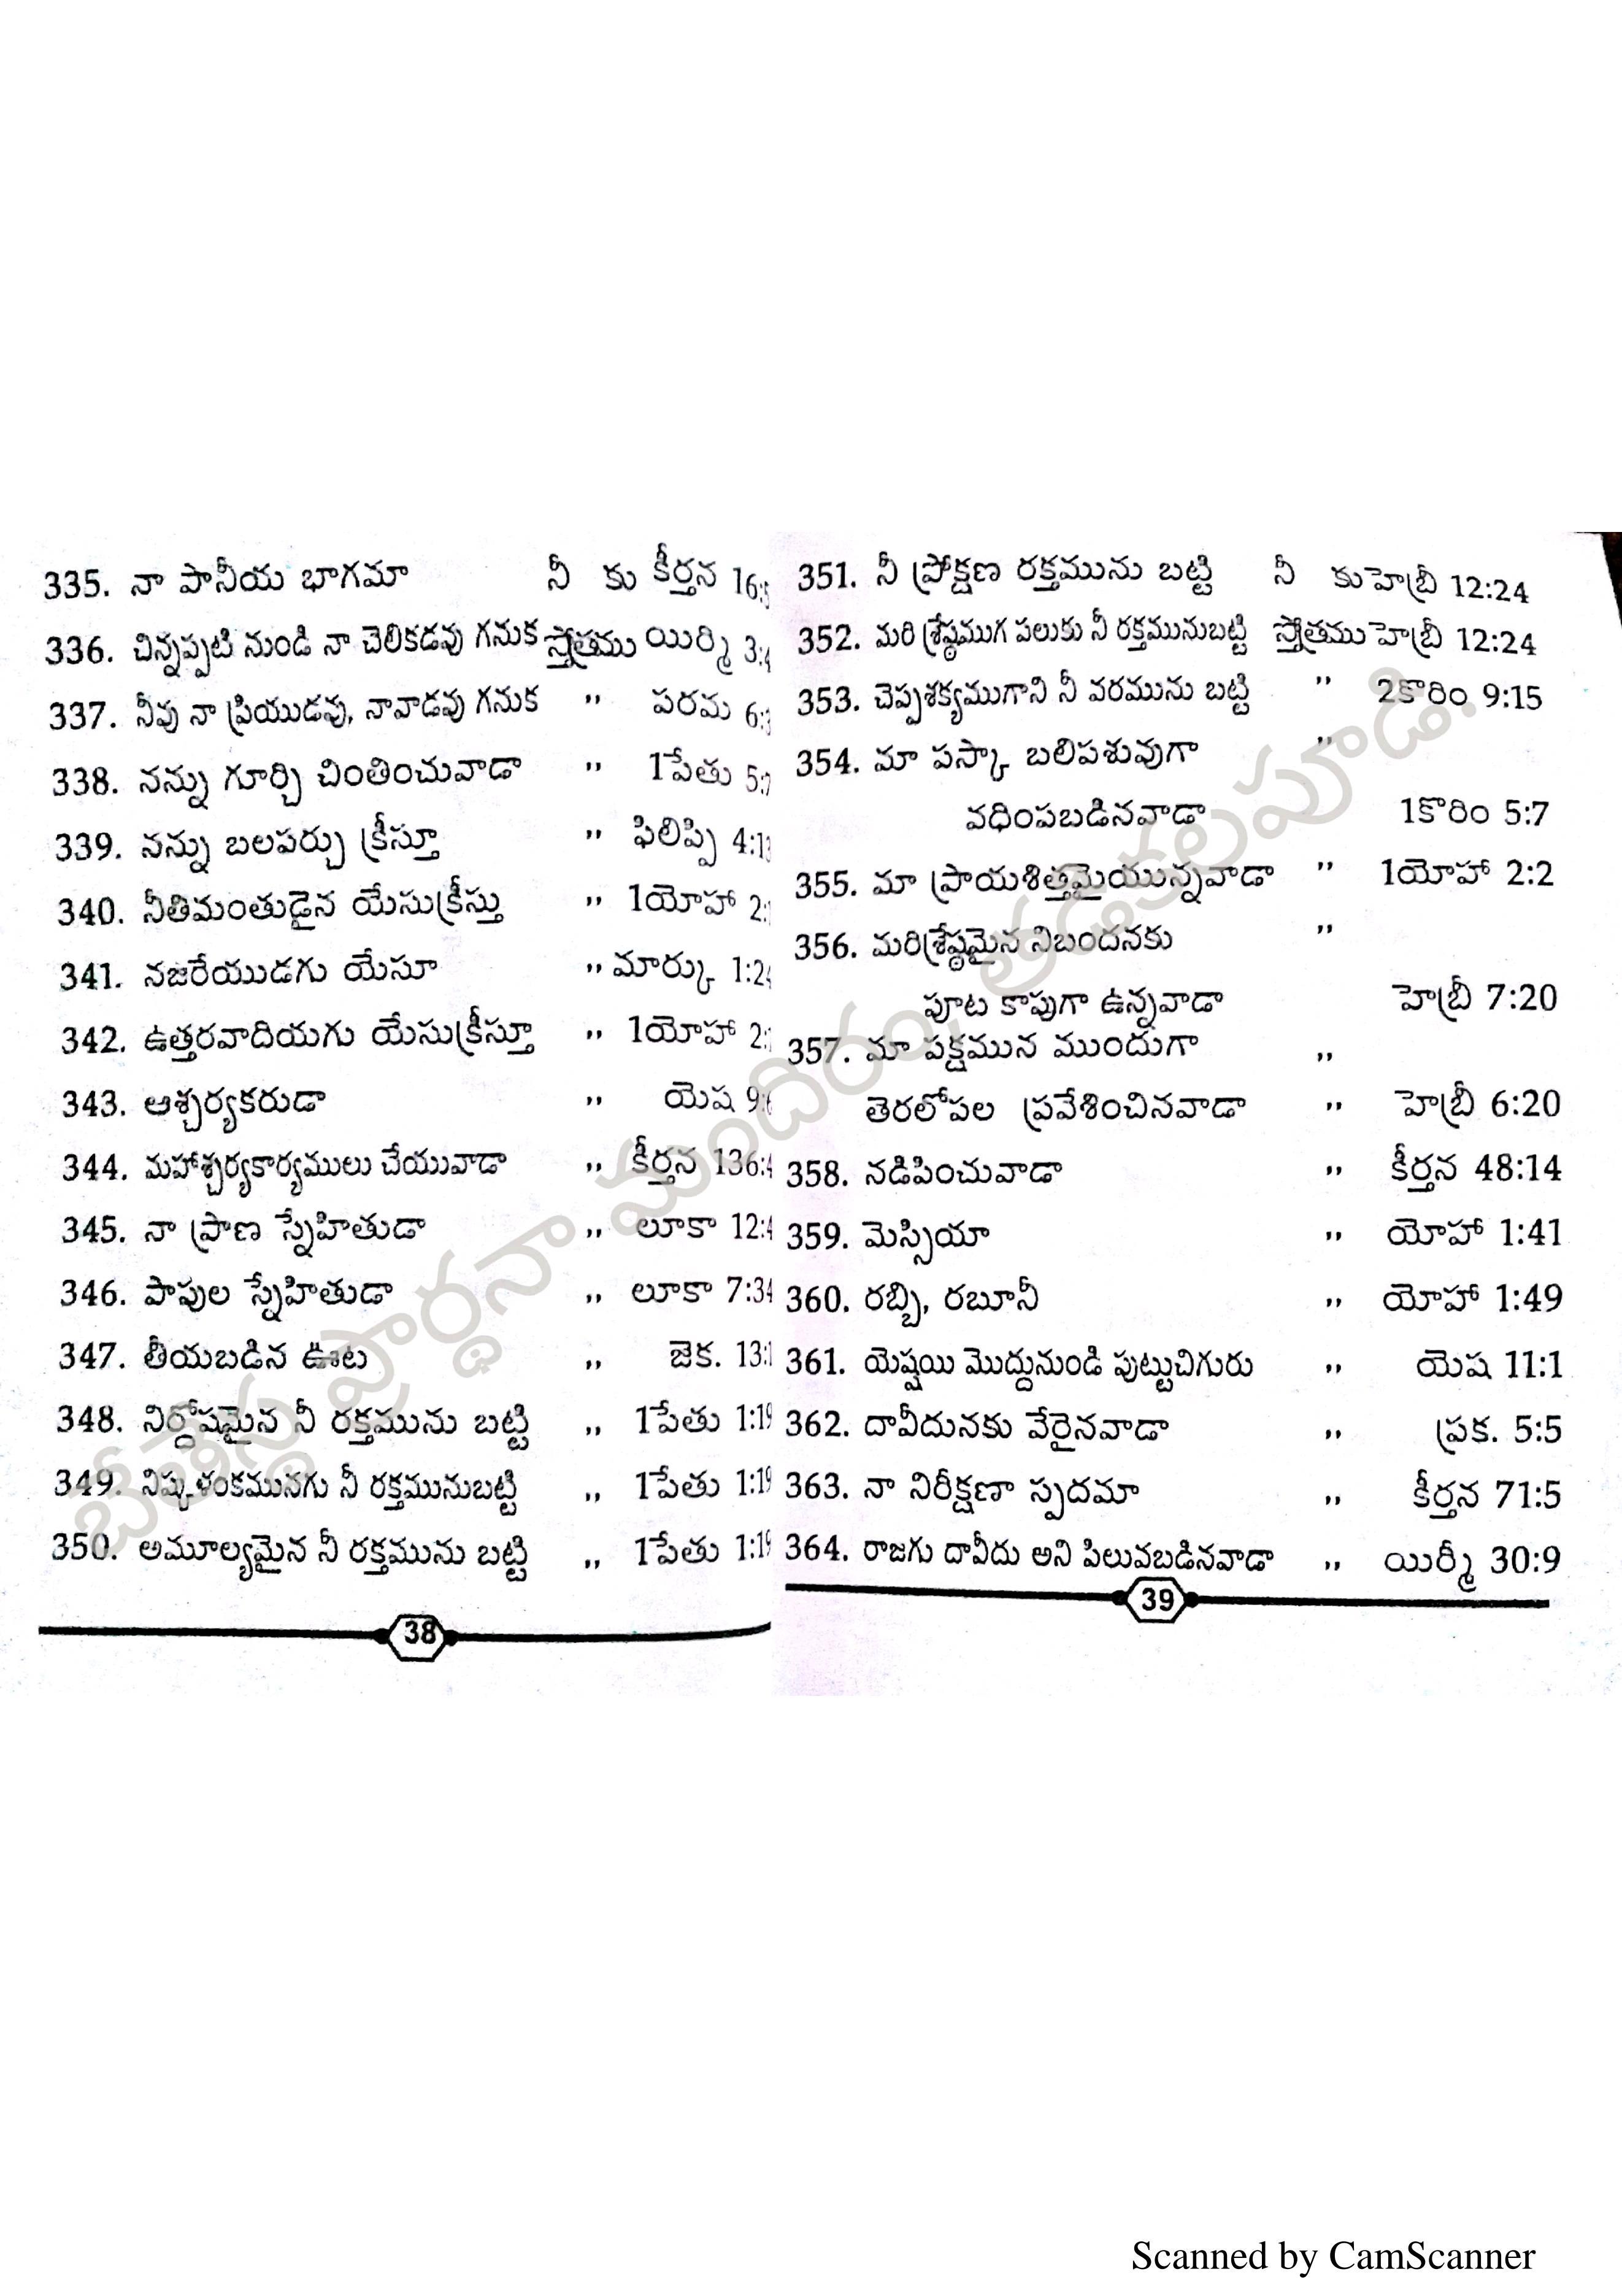 335. నా పానీయ భాగమా నీ కు కీర్తన 16:5
336. చిన్నప్పటి నుండి నా చెలికడవు గనుక స్తోత్రము యిర్మి 3:4
337. నీవు నా ప్రియుడవు, నావాడవు గనుక ,, పరమ 6:3
338. నన్ను గూర్చి చింతించువాడా ,, 1పేతు 5:7
339. నన్ను బలపర్చు క్రీస్తూ ,, ఫిలిప్పి 4:13
340. నీతిమంతుడైన యేసుక్రీస్తు ,, 1యోహా 2:1
341. నజరేయుడగు యేసూ ,, మార్కు 1:24
342. ఉత్తరవాదియగు యేసుక్రీస్తూ ,, 1యోహా 2:
343. ఆశ్చర్యకరుడా ,, యెష 9:6
344. మహాశ్చర్యకార్యములు చేయువాడా ,, కీర్తన 136:4
345. నా ప్రాణ స్నేహితుడా ,, లూకా 12:4
346. పాపుల స్నేహితుడా ,, లూకా 7:34
347. తీయబడిన ఊట ,, జెక. 13:1
348. నిర్దోషమైన నీ రక్తమును బట్టి ,, 1పేతు 1:19
349. నిష్కళంకమునగు నీ రక్తమునుబట్టి ,, 1పేతు 1:19
350. అమూల్యమైన నీ రక్తమును బట్టి ,, 1పేతు 1:19
38
351. నీ ప్రోక్షణ రక్తమును బట్టి నీ కు హెబ్రీ 12:24
352. మరి శ్రేష్ఠముగ పలుకు నీ రక్తమునుబట్టి స్తోత్రము హెబ్రీ 12:24
353. చెప్పశక్యముగాని నీ వరమును బట్టి ,, 2కొరిం 9:15
354. మా పస్కా బలిపశువుగా ,,
వధింపబడినవాడా 1కొరిం 5:7
355. మా ప్రాయశిత్తమైయున్నవాడా ,, 1యోహా 2:2
356. మరిశ్రేష్ఠమైన నిబందనకు ,,
పూట కాపుగా ఉన్నవాడా హెబ్రీ 7:20
357. మా పక్షమున ముందుగా ,,
తెరలోపల ప్రవేశించినవాడా ,, హెబ్రీ 6:20
358. నడిపించువాడా ,, కీర్తన 48:14
359. మెస్సియా ,, యోహా 1:41
360. రబ్బి, రబూనీ ,, యోహా 1:49
361. యెష్షయి మొద్దునుండి పుట్టుచిగురు ,, యెష 11:1
362. దావీదునకు వేరైనవాడా ,, ప్రక. 5:5
363. నా నిరీక్షణా స్పదమా ,, కీర్తన 71:5
364. రాజగు దావీదు అని పిలువబడినవాడా ,, యిర్మీ 30:9
39
బేతేస్థ ప్రార్థనా మందిరం, తడికలపూడి.
Scanned by CamScanner